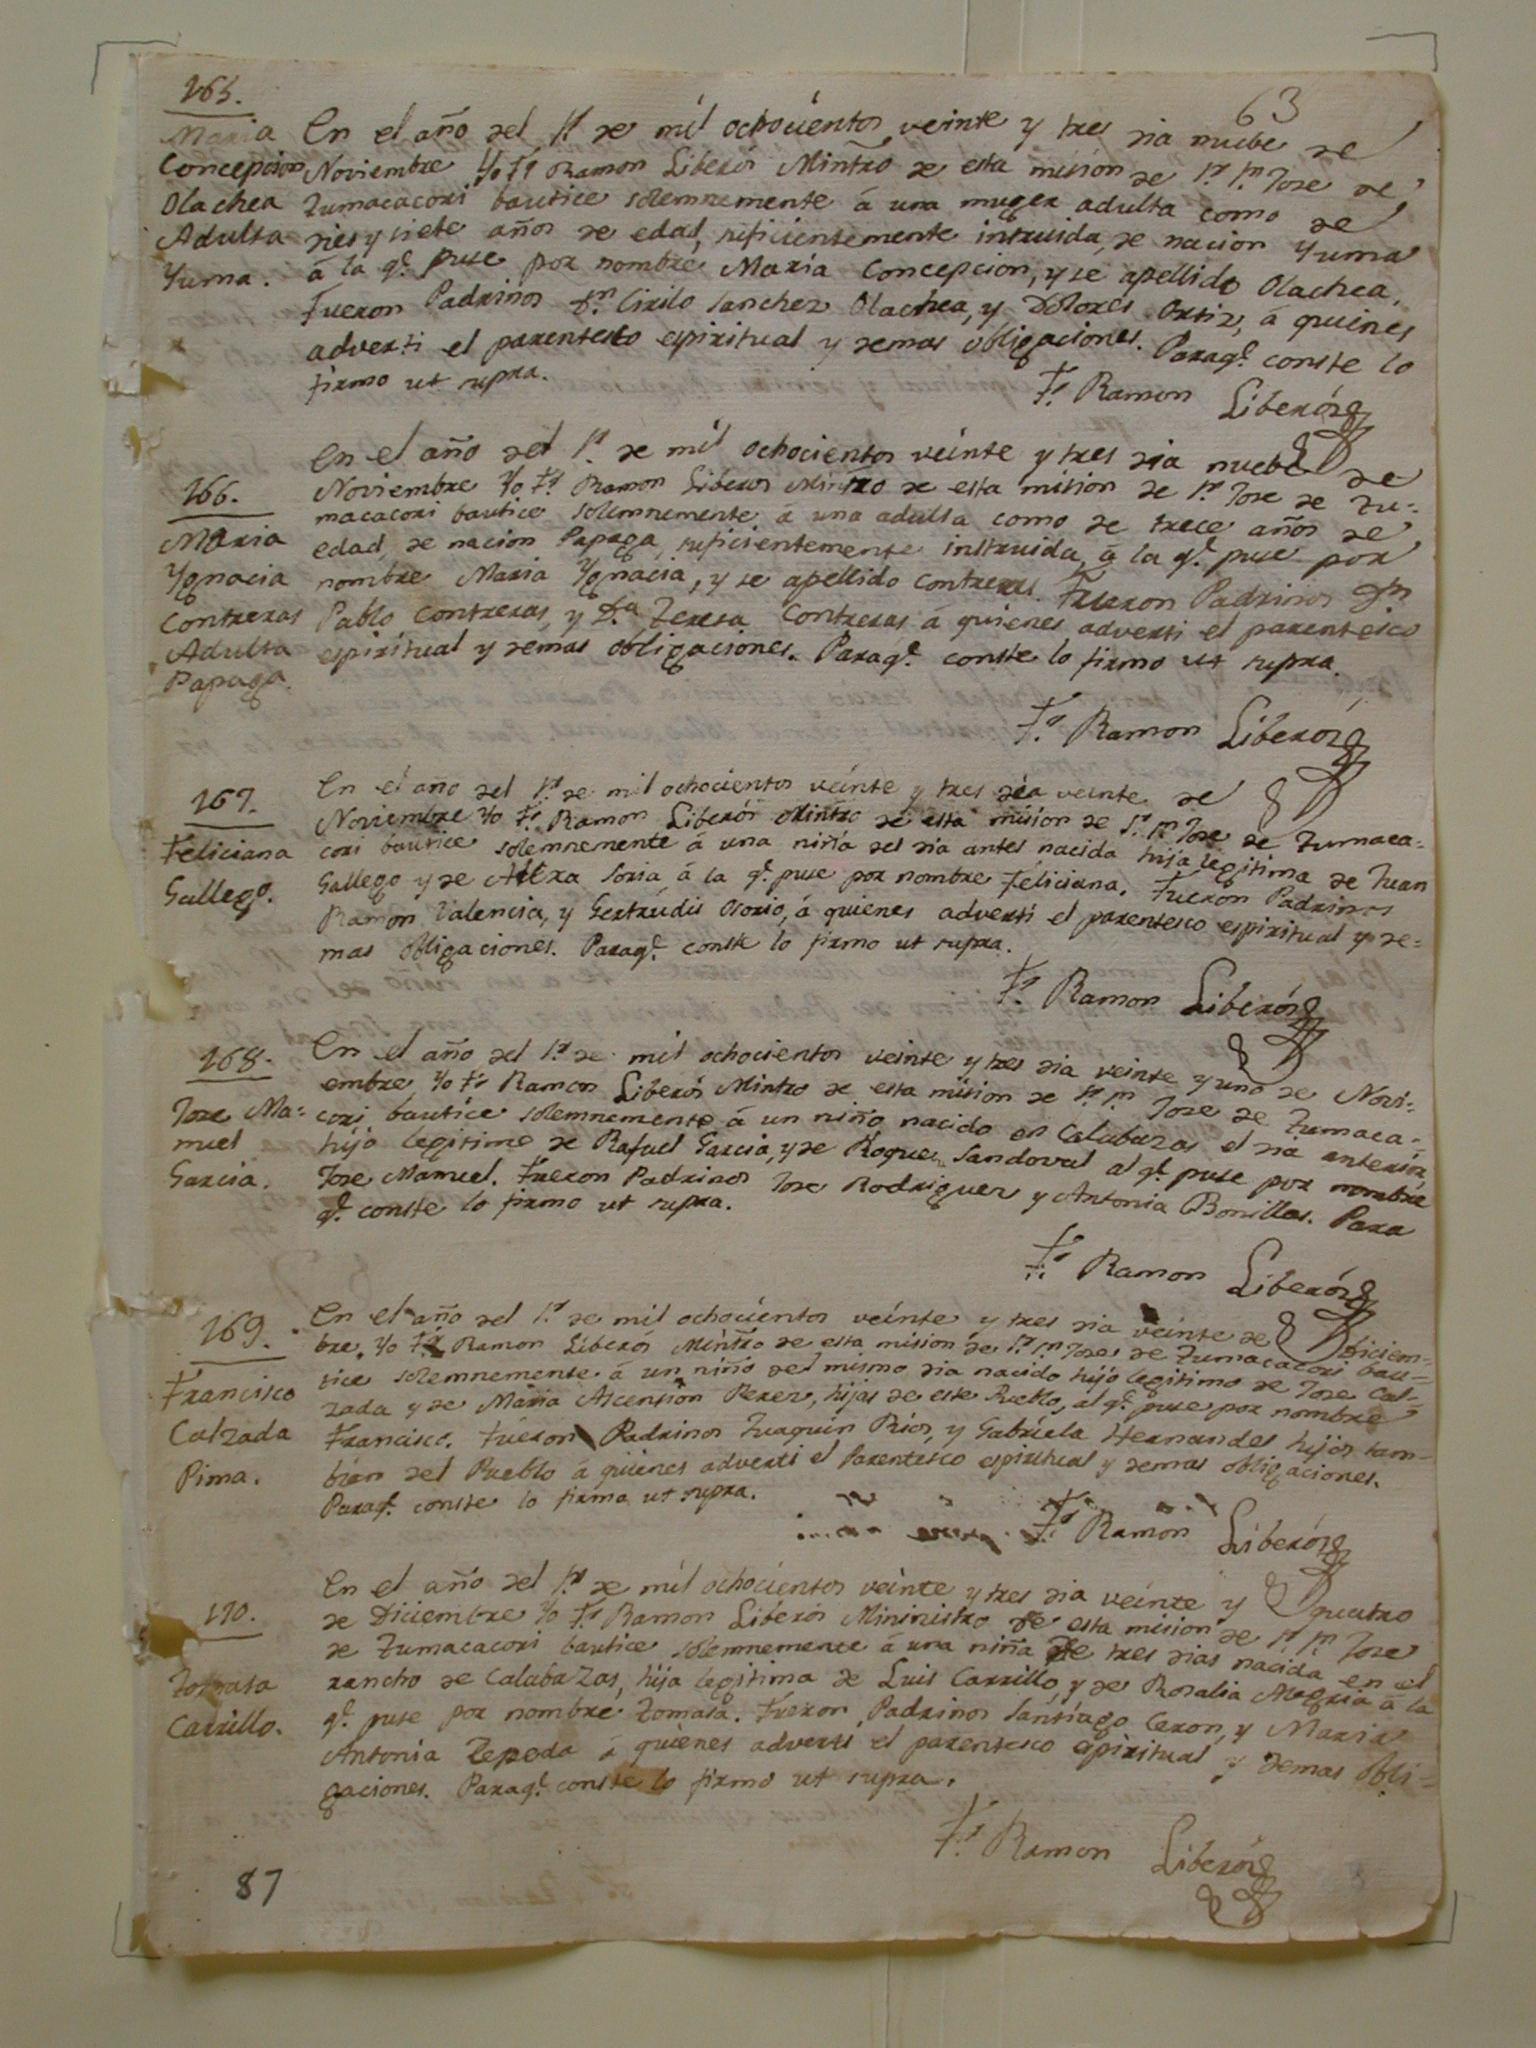 63
165.
Maria
Concepcion
Olachea
Adulta
Yuma.
En el año del Sr. de mil ochocientos veinte y tres dia nuebe de
Noviembre Yo Fr. Ramon Liberós Mintro de esta mision de Sn. Sn. Jose de
Tumacacori bautice solemnemente á una muger adulta como de
dies y siete años de edad, suficientemente intruida, de nacion Yuma
á la qe. puse por nombre Maria Concepcion, y se apellido Olachea,
Fueron Padrinos Dn. Cirilo Sanchez Olachea, y Dolores Ortiz, á quienes
adverti el parentesto espiritual y demas obligaciones. Paraqe. conste lo
firmo ut supra.
Fr. Ramon Liberós
166.
Maria
Ygnacia
Contreras
Adulta
Papaga.
En el año del Sr. de mil ochocientos veinte y tres dia nuebe de
Noviembre Yo Fr. Ramon Liberos Mintro de esta mision de Sn. Jose de Tu=
macacori bautice solemnemente á una adulta como de trece años de
edad, de nacion Papaga, suficientemente instruida, á la qe. puse por
nombre Maria Ygnacia, y se apellido Contreras. Fueron Padrinos Dn.
Pablo Contreras, y Da. Teresa Contreras á quienes adverti el parentesco
espiritual y demas obligaciones. Paraqe. conste lo firmo ut supra.
Fr. Ramon Liberós
167.
Feliciana
Gallego.
En el año del Sr. de mil ochocientos veinte y tres dia veinte de
Noviembre Yo Fr. Ramon Liberós Mintro de esta mision de Sn. Sn. Jose de Tumaca=
cori bautice solemnemente á una niña del dia antes nacida hija legitima de Juan
Gallego y de Soria á la qe. puse por nombre Feliciana. Fueron Padrinos
Ramon Valencia, y Gertrudis Osorio, á quienes adverti el parentesco espiritual y de=
mas obligaciones. Paraqe. conste lo firmo ut supra.
Fr. Ramon Liberós
168.
Jose Ma=
nuel
Garcia.
En el año del Sr. de mil ochocientos veinte y tres dia veinte y uno de Novi=
embre Yo Fr. Ramon Liberós Mintro de esta mision de Sn. Sn. Jose de Tumaca=
cori bautice solemnemente á un niño nacido en Calabazas el dia anterior
hijo legitimo de Rafael Garcia, y de Roque Sandoval al qe. puse por nombre
Jose Manuel. Fueron Padrinos Jose Rodriguez y Antonia Bonillas. Para
qe. conste lo firmo ut supra.
Fr. Ramon Liberós
169.
Francisco
Calzada
Pima.
En el año del Sr. de mil ochocientos veinte y tres dia veinte de Diciem=
bre, Yo Fr. Ramon Liberós Mintro de esta mision de Sn. Sn. Jose de Tumacacori bau=
tice solemnemente á un niño del mismo dia nacido hijo legitimo de Jose Cal=
zada y de Maria Ascension Perez, hijas de este Pueblo, al qe. puse por nombre
Francisco. Fueron Padrinos Juaquin Rios, y Gabriela Hernandes hijos tam=
bien del Pueblo á quienes adverti el Parentesco espiritual y demas obligaciones.
Paraqe. conste lo firma ut supra.
Fr. Ramon Liberós
170.
Tomasa
Carrillo.
En el año del Sr. de mil ochocientos veinte y tres dia veinte y quatro
de Diciembre Yo Fr. Ramon Liberós Mininistro de esta mision de Sn. Sn. Jose
de Tumacacori bautice solemnemente á una niña de tres dias nacida en el
rancho de Calabazas, hija legitima de Luis Carrillo, y de Rosalia Alegria á la
qe. puse por nombre Tomasa. Fueron Padrinos Santiago Ceron, y Maria
Antonia Zepeda á quienes adverti el parentesco espiritual y demas obli=
gaciones. Paraqe. conste lo firmo ut supra.
Fr. Ramon Liberós
87